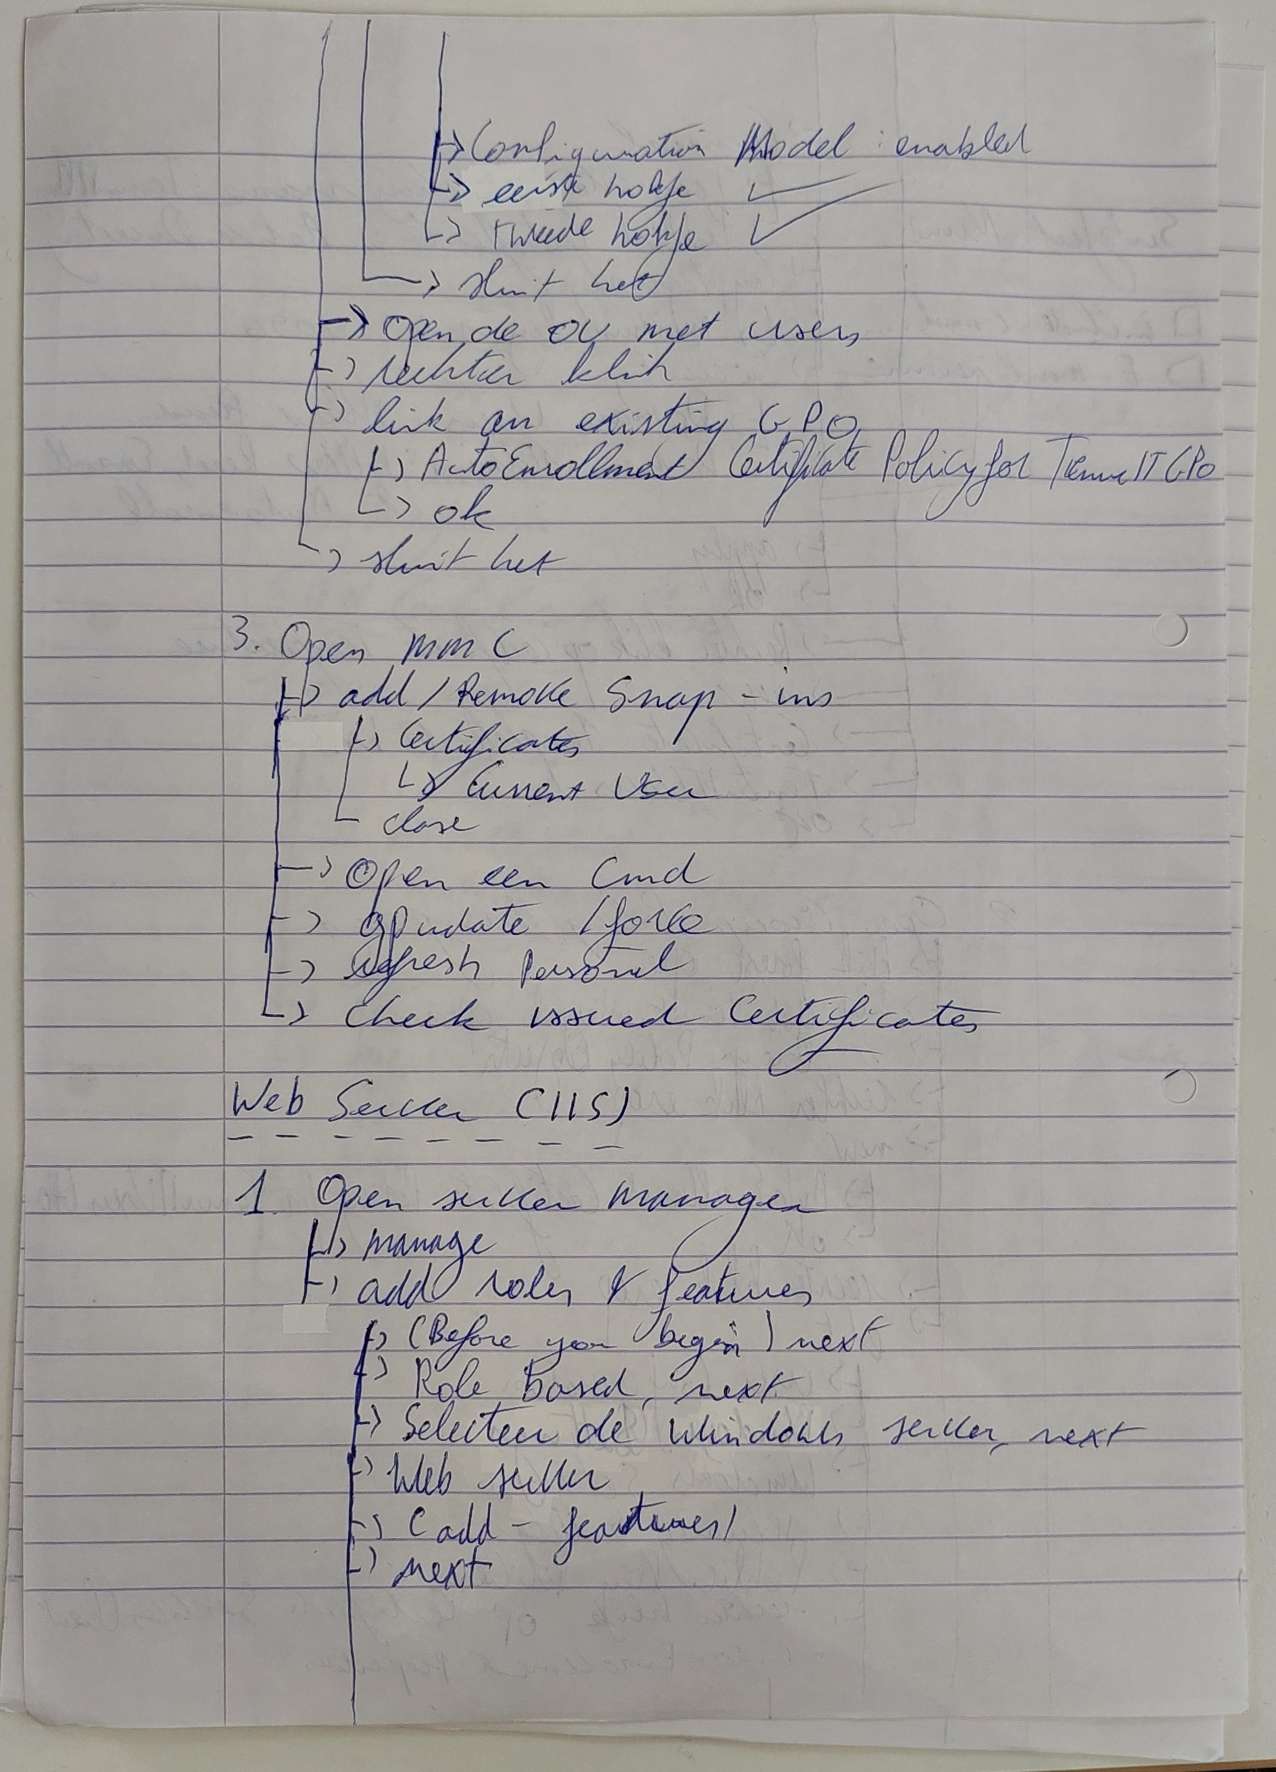 Configuration Model : enabled
eerste hokje ✓
tweede hokje ✓
sluit het
Open de OU met users
rechter klik
link an existing GPO
AutoEnrollment Certificate Policy for IT GPO
ok
sluit het
3. Open MMC
add / Remove Snap-ins
Certificates
Current User
close
Open een Cmd
gpupdate /force
refresh Personal
Check issued Certificates
Web Server (IIS)
1. Open server manager
manage
add roles & features
(Before you begin) next
Role based, next
Selecteer de Windows server, next
Web server
(add - features)
next